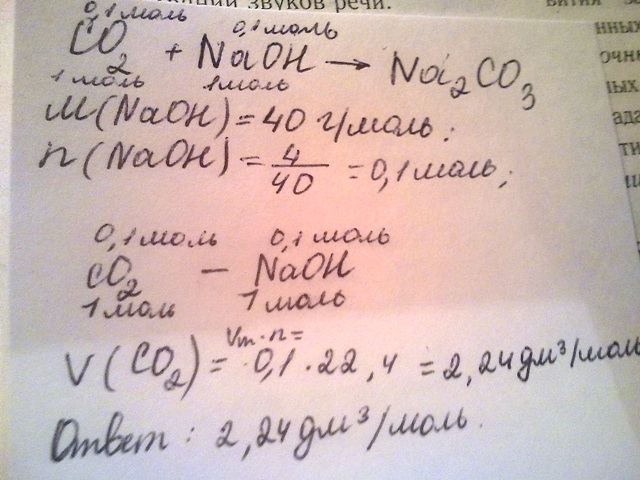 ций звуков речи.
0,1 моль 0,1 моль
CO₂ + NaOH → Na₂CO₃
1 моль 1 моль
M(NaOH) = 40 г/моль;
n(NaOH) = 4/40 = 0,1 моль;
0,1 моль 0,1 моль
CO₂ — NaOH
1 моль 1 моль
Vm·n=
V(CO₂) = 0,1 · 22,4 = 2,24 дм³/моль
Ответ: 2,24 дм³/моль.